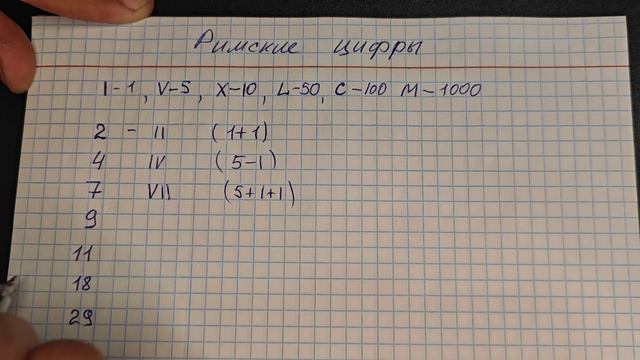 Римские цифры
I-1, V-5, X-10, L-50, C-100 M-1000
2 - II (1+1)
4 IV (5-1)
7 VII (5+1+1)
9
11
18
29